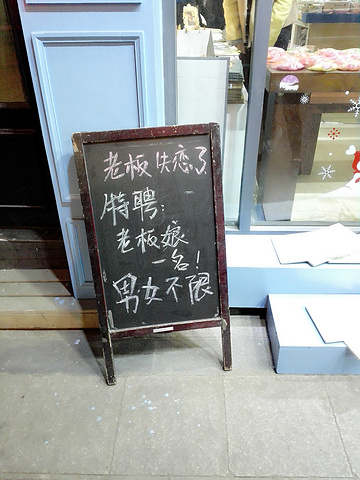 老板失恋了
特聘:
老板娘
一名!
男女不限